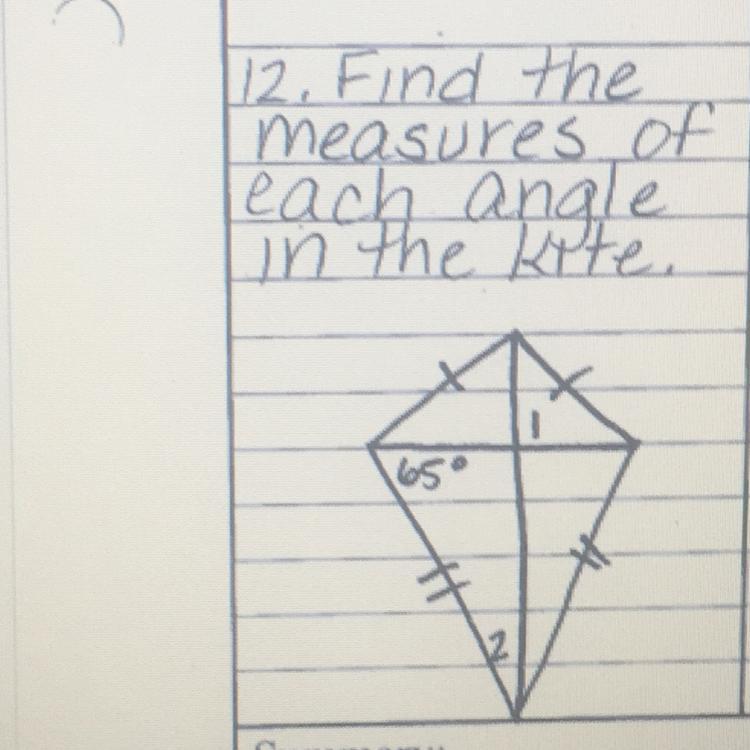 12. Find the
measures of
each angle
in the kite.
1
65°
2